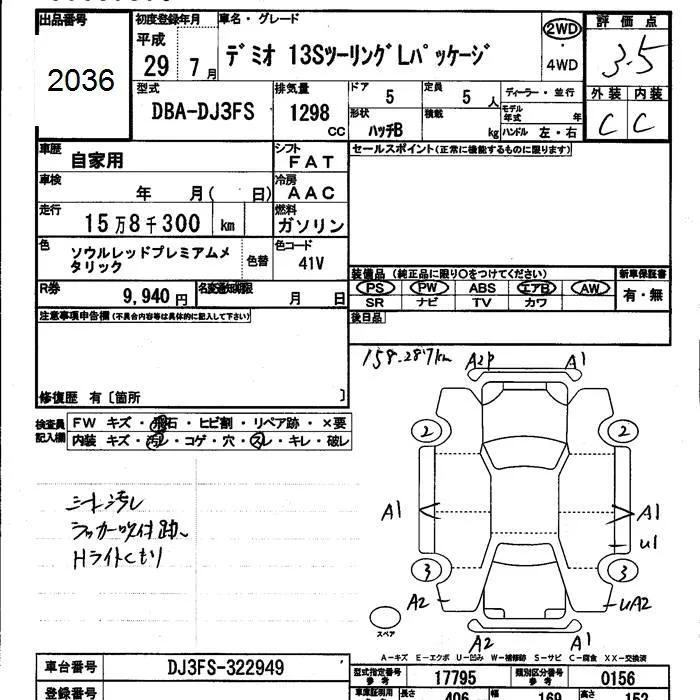 出品番号
2036
初度登録年月
平成
29年 7月
車名・グレード
デミオ 13SツーリングLパッケージ
2WD
・
4WD
評価点
3.5
外装 内装
C C
型式
DBA-DJ3FS
排気量
1298
CC
ドア
5
定員
5 人
ディーラー・並行
形状
ハッチB
積載
kg
モデル年式 年
ハンドル 左・右
車歴
自家用
シフト
FAT
セールスポイント(正常に機能するものに限ります)
車検
年 月( 日)
冷房
AAC
走行
15万8千300 km
燃料
ガソリン
色
ソウルレッドプレミアムメ
タリック
色替
色コード
41V
装備品 (純正品に限り○をつけてください)
新車保証書
PS PW ABS エアB AW
有・無
SR ナビ TV カワ
R券
9,940円
名変通知期限
月 日
後日品
注意事項申告欄(不具合内容等は具体的に記入して下さい)
修復歴 有〔箇所 〕
検査員
記入欄
FW キズ・飛石・ヒビ割・リペア跡・×要
内装 キズ・汚レ・コゲ・穴・スレ・キレ・破レ
158.287km
A2P A1
2 2
A1 A1
U1
3 3
A2 UA2
A2 A1
シート汚レ
ラッカー吹付跡
Hライトくもり
スペア
A-キズ E-エクボ U-凹み W-補修跡 S-サビ C-腐食 XX-交換済
車台番号
DJ3FS-322949
型式指定番号
参考
17795
類別区分番号
参考
0156
登録番号
車庫証明用
長さ
406
幅
169
高さ
152